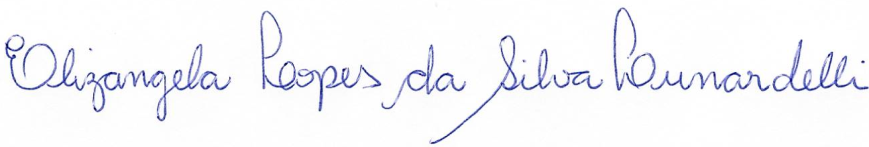 Elizangela Lopes da Silva Lunardelli